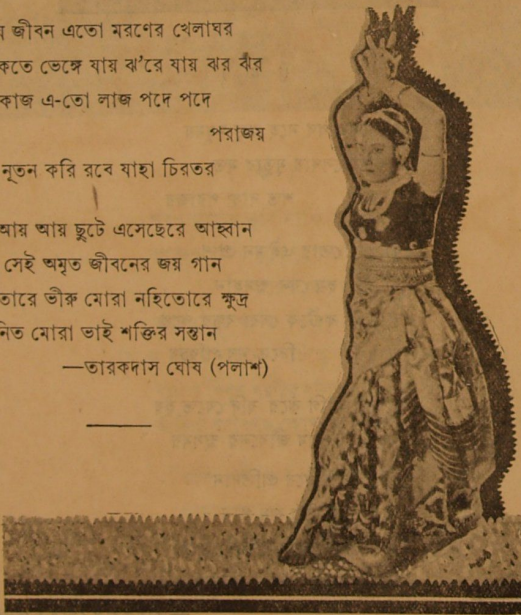 জীবন এতো মরণের খেলাঘর
কতে ভেঙ্গে যায় ঝ'রে যায় ঝর ঝর
কাজ এ-তো লাজ পদে পদে
পরাজয়
নূতন করি রবে যাহা চিরতর
আয় আয় ছুটে এসেছেরে আহ্বান
সেই অমৃত জীবনের জয় গান
তারে ভীরু মোরা নহিতোরে ক্ষুদ্র
নিত মোরা ভাই শক্তির সন্তান
—তারকদাস ঘোষ (পলাশ)